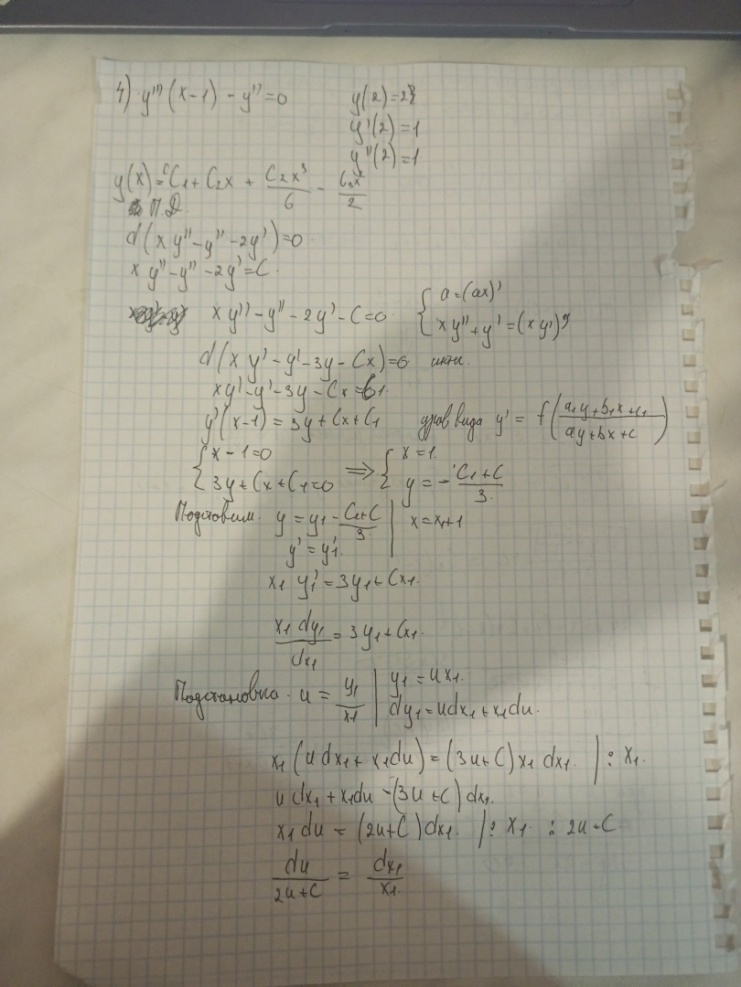 4) y'''(x-1) - y'' = 0 y(2) = 2
y'(2) = 1
y''(2) = 1
y(x) = C1 + C2x + C2x³/6 - C3x²/2
П.Д.
d(xy'' - y'' - 2y') = 0
xy'' - y'' - 2y' = C
xy'' - y'' - 2y' - C = 0 { a = (ax)'
xy'' + y' = (xy')'
d(xy' - y' - 3y - Cx) = 0
xy' - y' - 3y - Cx = C1
y'(x-1) = 3y + Cx + C1 урав вида y' = f((a1y + b1x + c1)/(ay + bx + c))
{ x - 1 = 0 ⇒ { x = 1
3y + Cx + C1 = 0 y = -(C1 + C)/3
Подставим. y = y1 - (C1 + C)/3 | x = x1 + 1
y' = y1'
x1 y1' = 3y1 + Cx1
x1 dy1/dx1 = 3y1 + Cx1
Подстановка. u = y1/x1 | y1 = ux1
dy1 = udx1 + x1du.
x1(udx1 + x1du) = (3u + C)x1 dx1 | : x1
udx1 + x1du = (3u + C)dx1
x1du = (2u + C)dx1 | : x1 : 2u + C
du/(2u + C) = dx1/x1